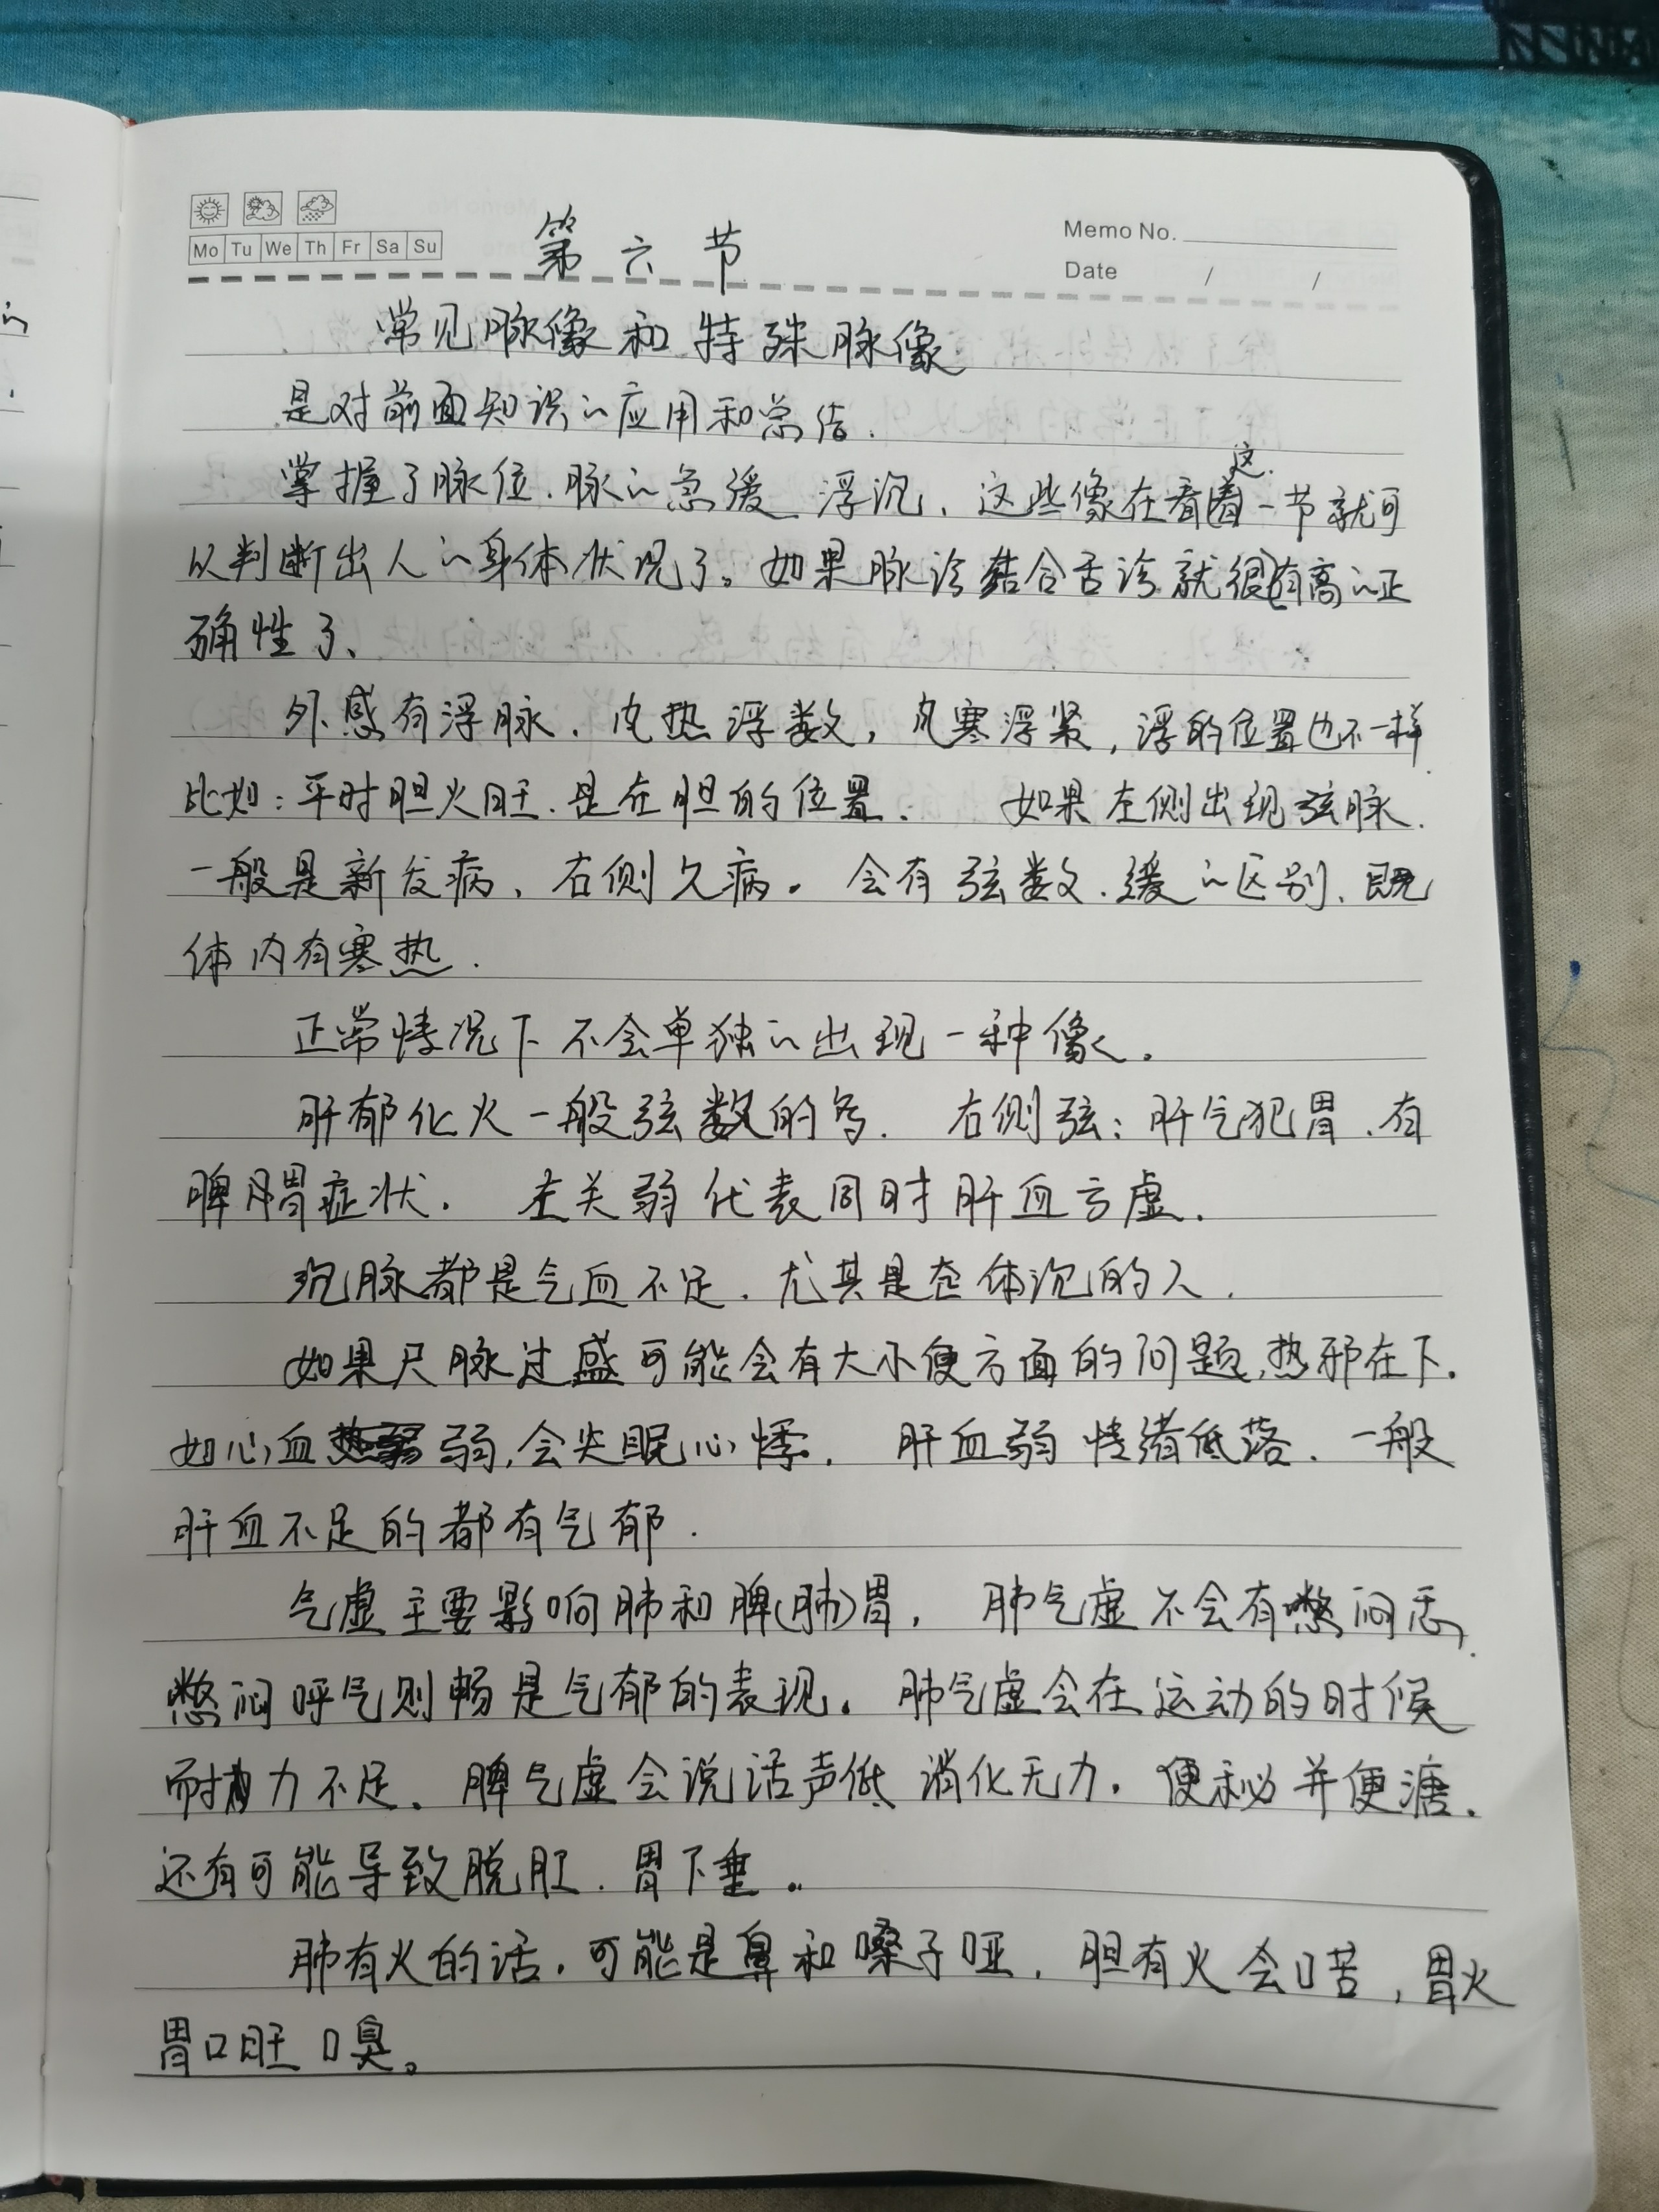 Mo Tu We Th Fr Sa Su
Memo No.
Date / /
第六节
常见脉像和特殊脉像
是对前面知识的应用和总结.
掌握了脉位.脉的急缓 浮沉、这些像在看这一节就可
以判断出人的身体状况了。如果脉诊结合舌诊就很有高的正
确性了、
外感有浮脉.内热浮数,风寒浮紧,浮的位置也不一样
比如:平时胆火旺.是在胆的位置. 如果左侧出现弦脉.
一般是新发病、右侧久病。会有弦数.缓的区别.既
体内有寒热.
正常情况下不会单独的出现一种像.
肝郁化火一般弦数的多. 右侧弦:肝气犯胃.有
脾胃症状. 左关弱代表同时肝血亏虚.
沉脉都是气血不足.尤其是整体沉的人.
如果尺脉过盛可能会有大小便方面的问题,热邪在下.
如心血弱,会失眠心悸. 肝血弱情绪低落.一般
肝血不足的都有气郁.
气虚主要影响肺和脾(肺)胃, 肺气虚不会有憋闷
憋闷呼气则畅是气郁的表现。肺气虚会在运动的时候
耐力不足.脾气虚会说话声低 消化无力.便秘并便溏.
还有可能导致脱肛.胃下垂。
肺有火的话.可能是鼻和嗓子哑.胆有火会口苦,胃火
胃口旺 口臭。